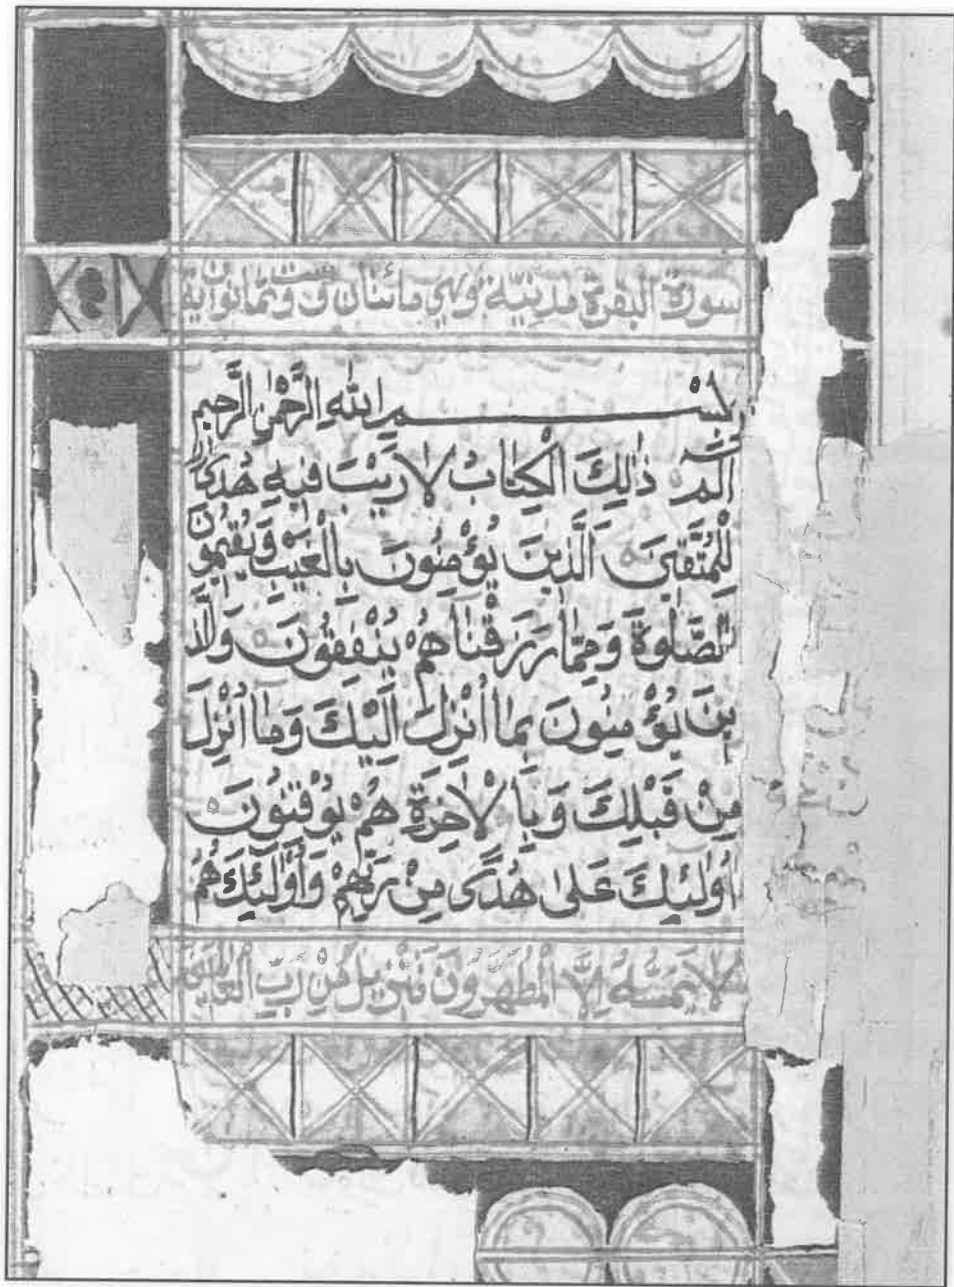 سورة البقرة مدنية وهي مائتان وست وثمانون آية
بسم الله الرحمن الرحيم
الٓمٓ ذٰلِكَ الْكِتَابُ لَا رَيْبَ فِيهِ هُدًى
لِلْمُتَّقِينَ الَّذِينَ يُؤْمِنُونَ بِالْغَيْبِ وَيُقِيمُونَ
الصَّلٰوةَ وَمِمَّا رَزَقْنَاهُمْ يُنْفِقُونَ وَالَّذِ
ينَ يُؤْمِنُونَ بِمَا أُنْزِلَ إِلَيْكَ وَمَا أُنْزِلَ
مِنْ قَبْلِكَ وَبِالْاٰخِرَةِ هُمْ يُوقِنُونَ
اُولٰئِكَ عَلٰى هُدًى مِنْ رَبِّهِمْ وَاُولٰئِكَ هُمُ
لَا يَمَسُّهُ إِلَّا الْمُطَهَّرُونَ تَنْزِيلٌ مِنْ رَبِّ الْعَالَمِينَ